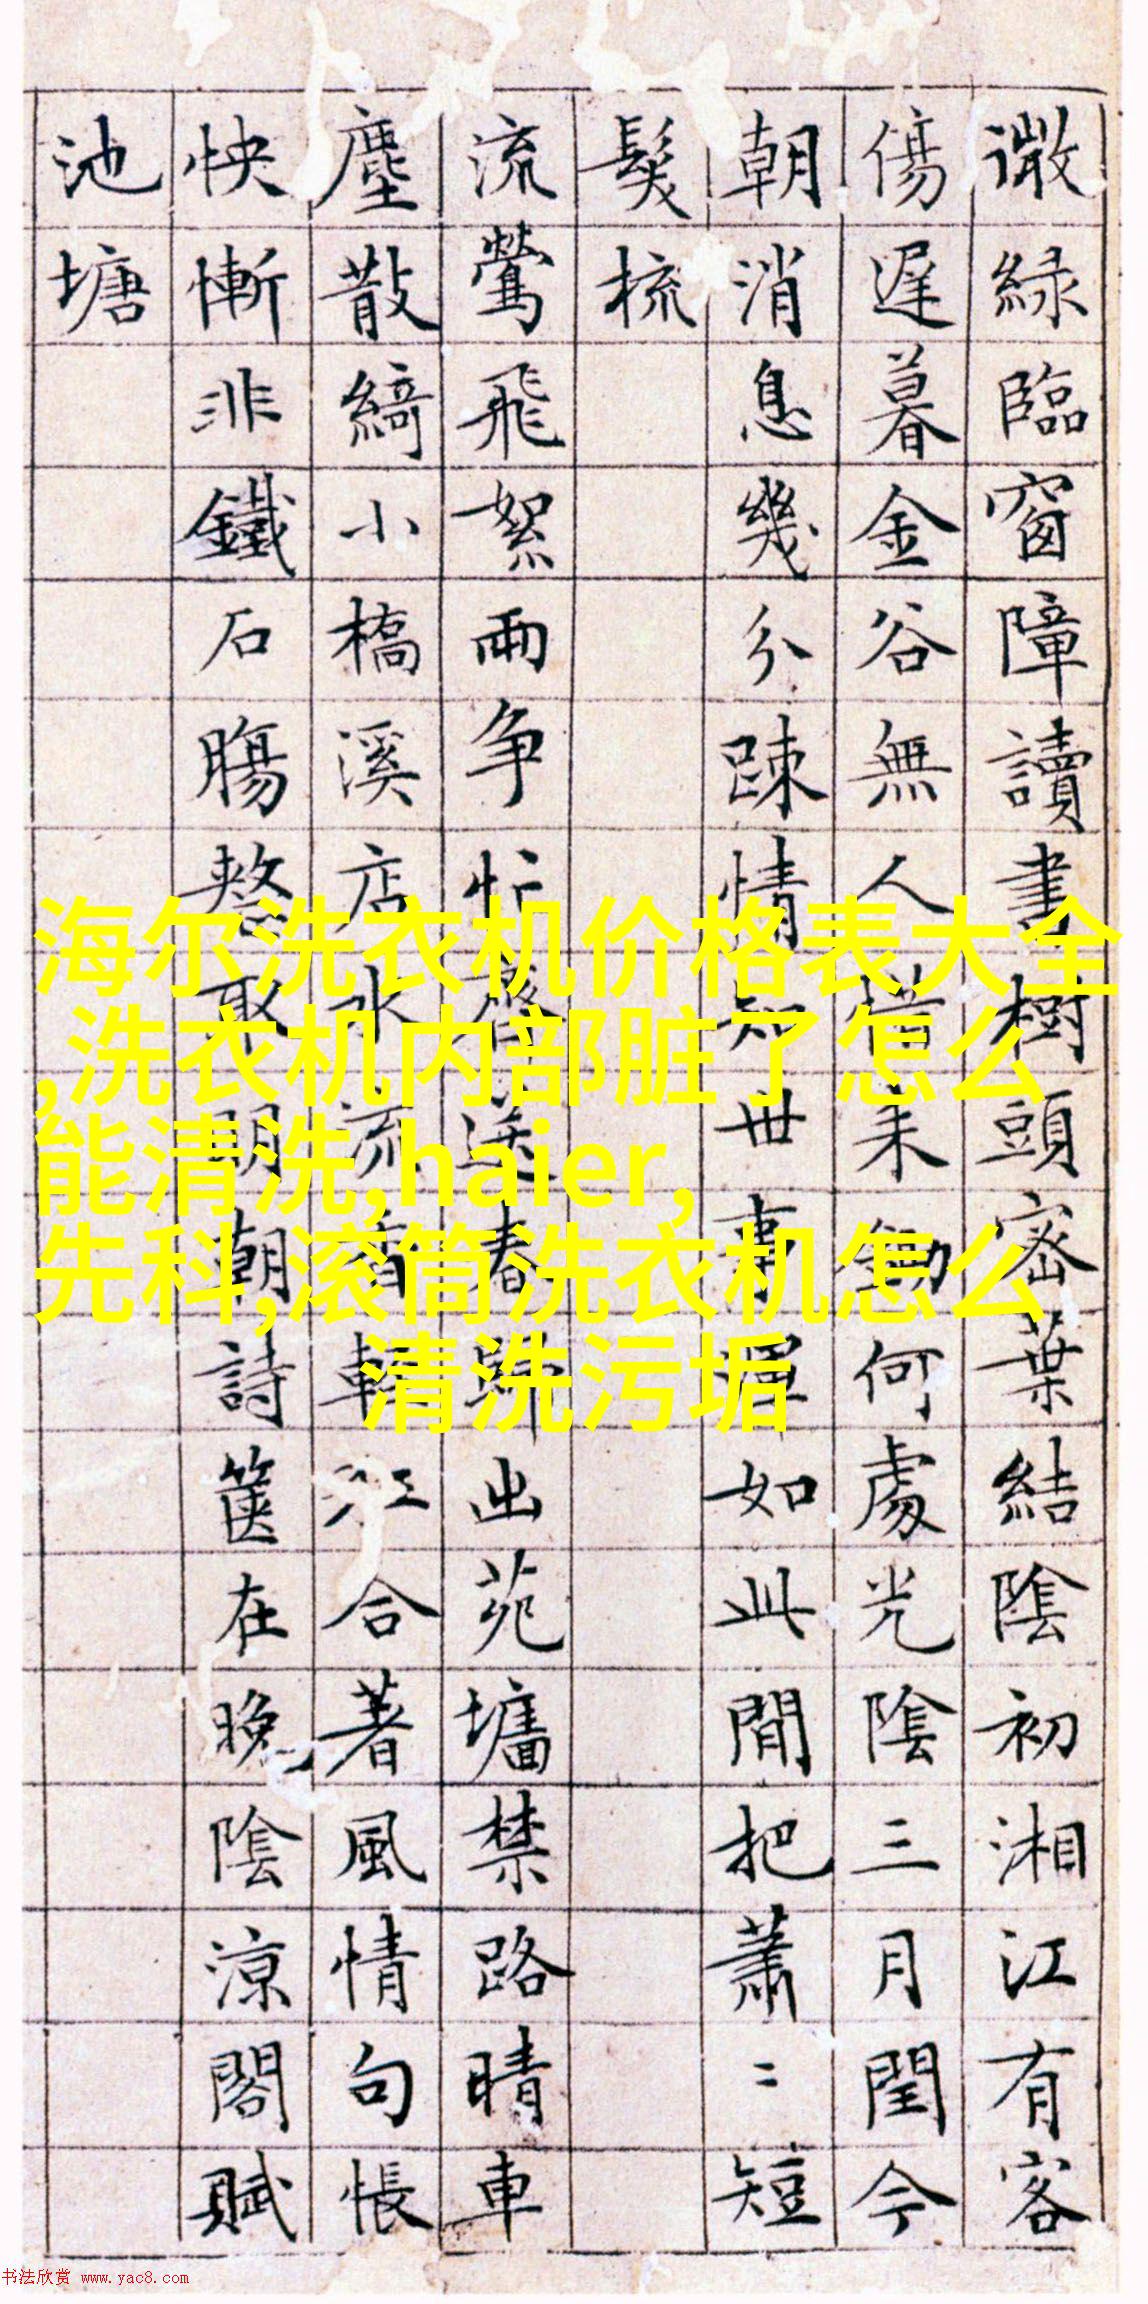 微綠臨窗障讀書樹頭密葉結陰初湘江有客
傷遲暮金谷無人惜耒鋤何處光陰三月閏今
朝消息幾分踈情知世事渾如此閒把蕭〻短
髮梳
流鶯飛絮兩争忙送春歸出苑墻禁路晴車
塵散綺小橋溪店水流香江合著風情句悵
怏慚非鐵石腸取明朝詩篋在晚陰涼閣賦
池塘
海尔洗衣机价格表大全
,洗衣机内部脏了怎么
能清洗,haier,
先科,滚筒洗衣机怎么
清洗污垢
书法欣赏 www.yac8.com